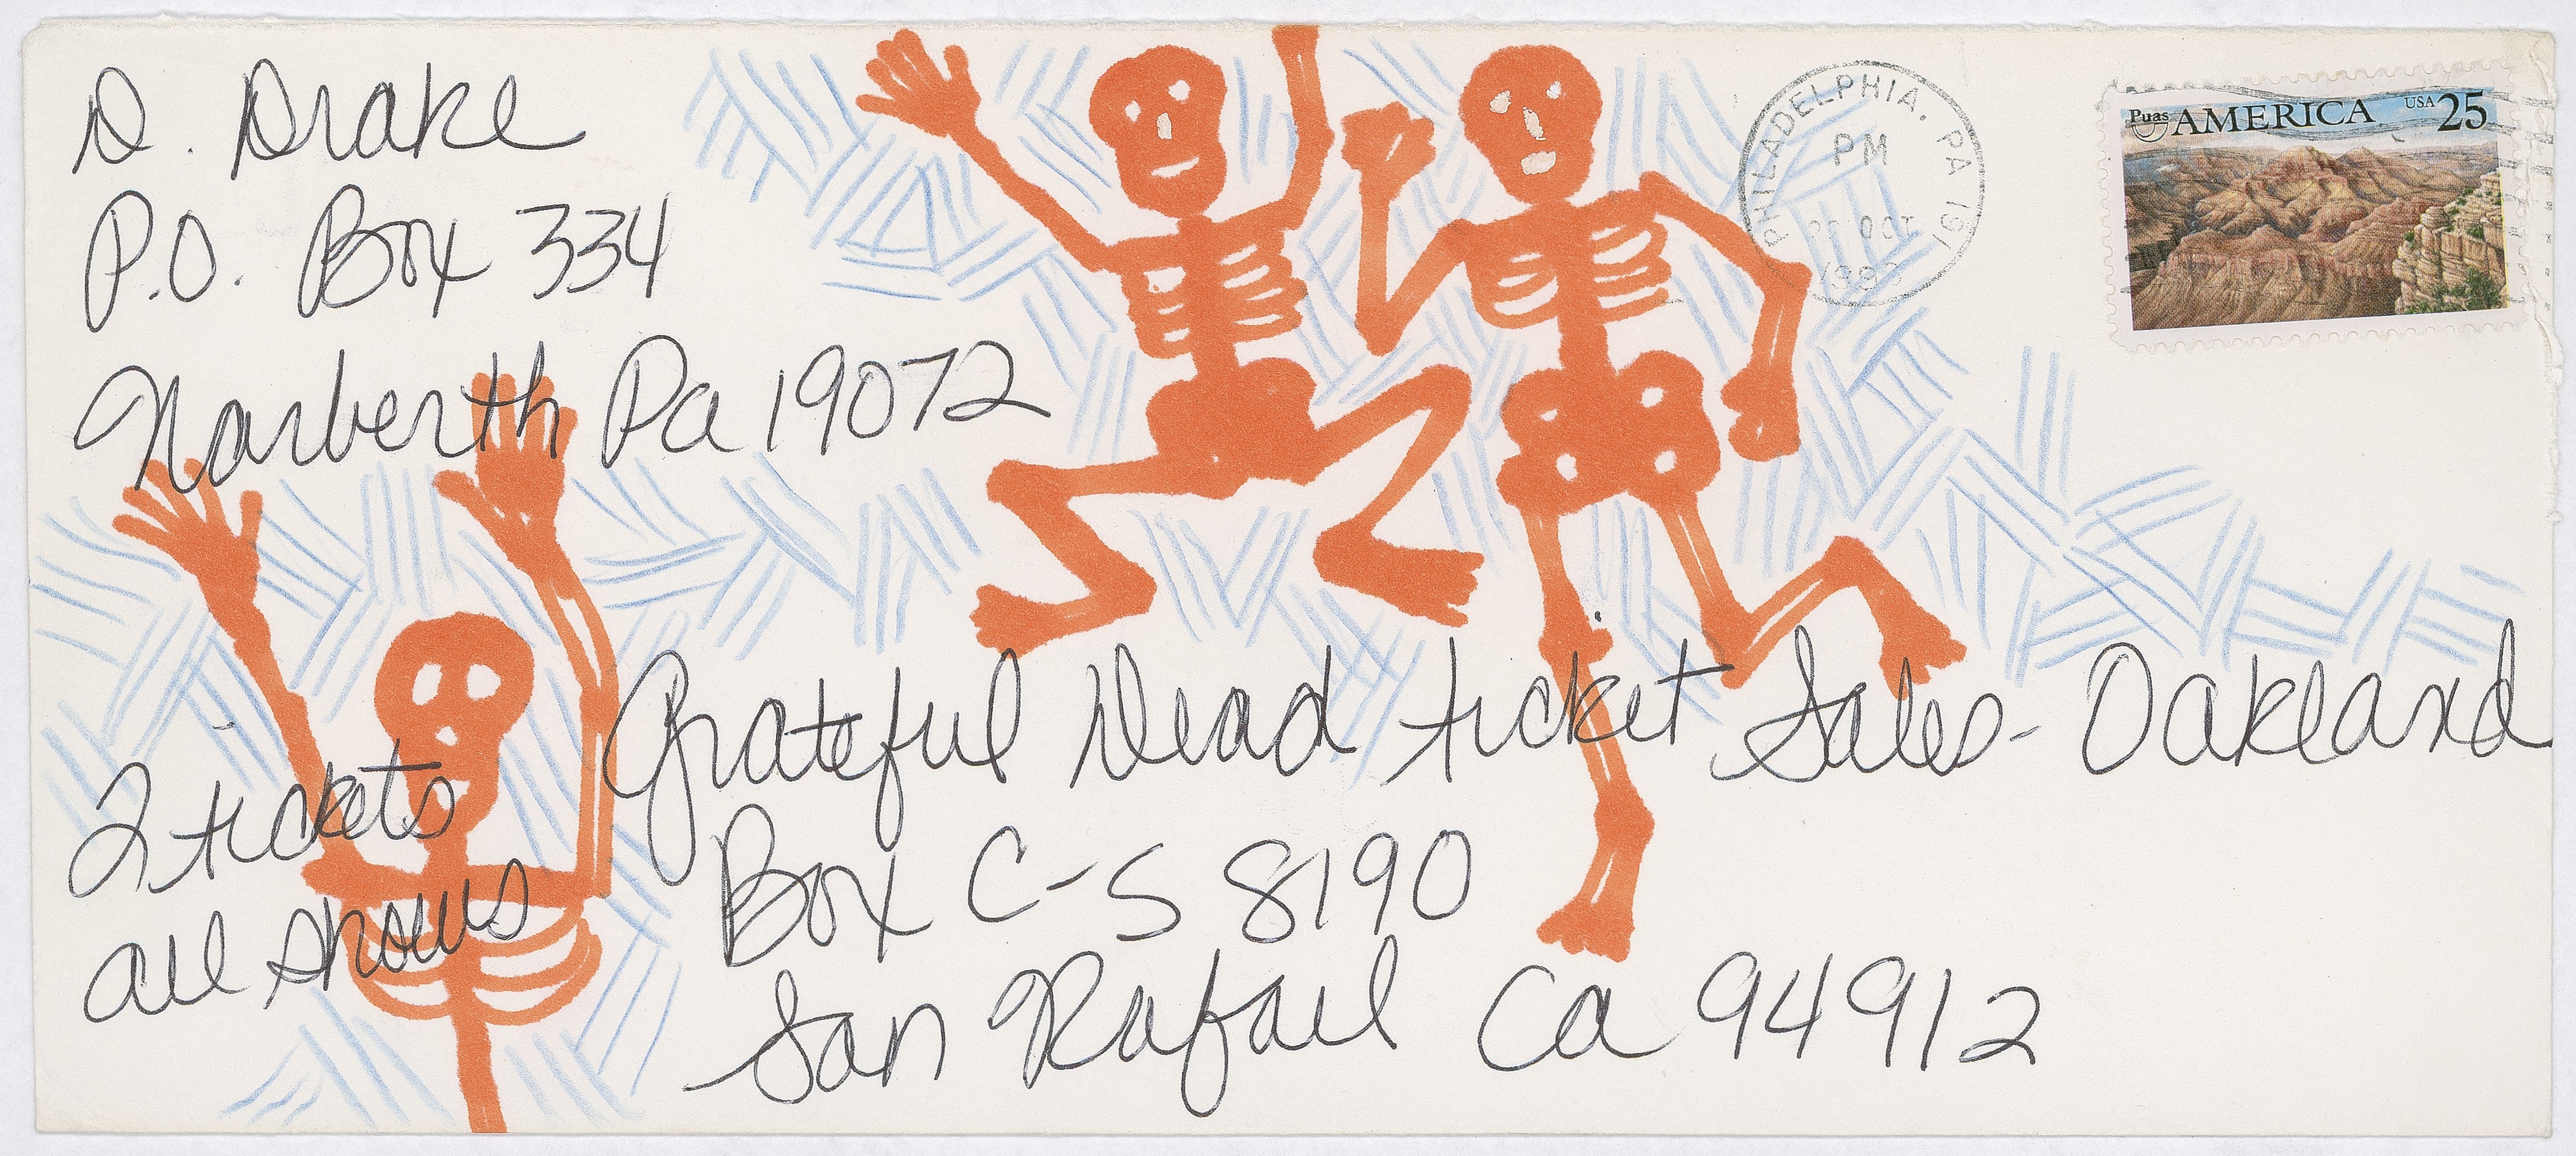 D. Drake
P.O. Box 334
Narberth Pa 19072
PHILADELPHIA, PA 191
PM
OCT
Puas AMERICA USA 25
2 tickets
all shows
Grateful Dead ticket Sales - Oakland
Box C-S 8190
San Rafael Ca 94912